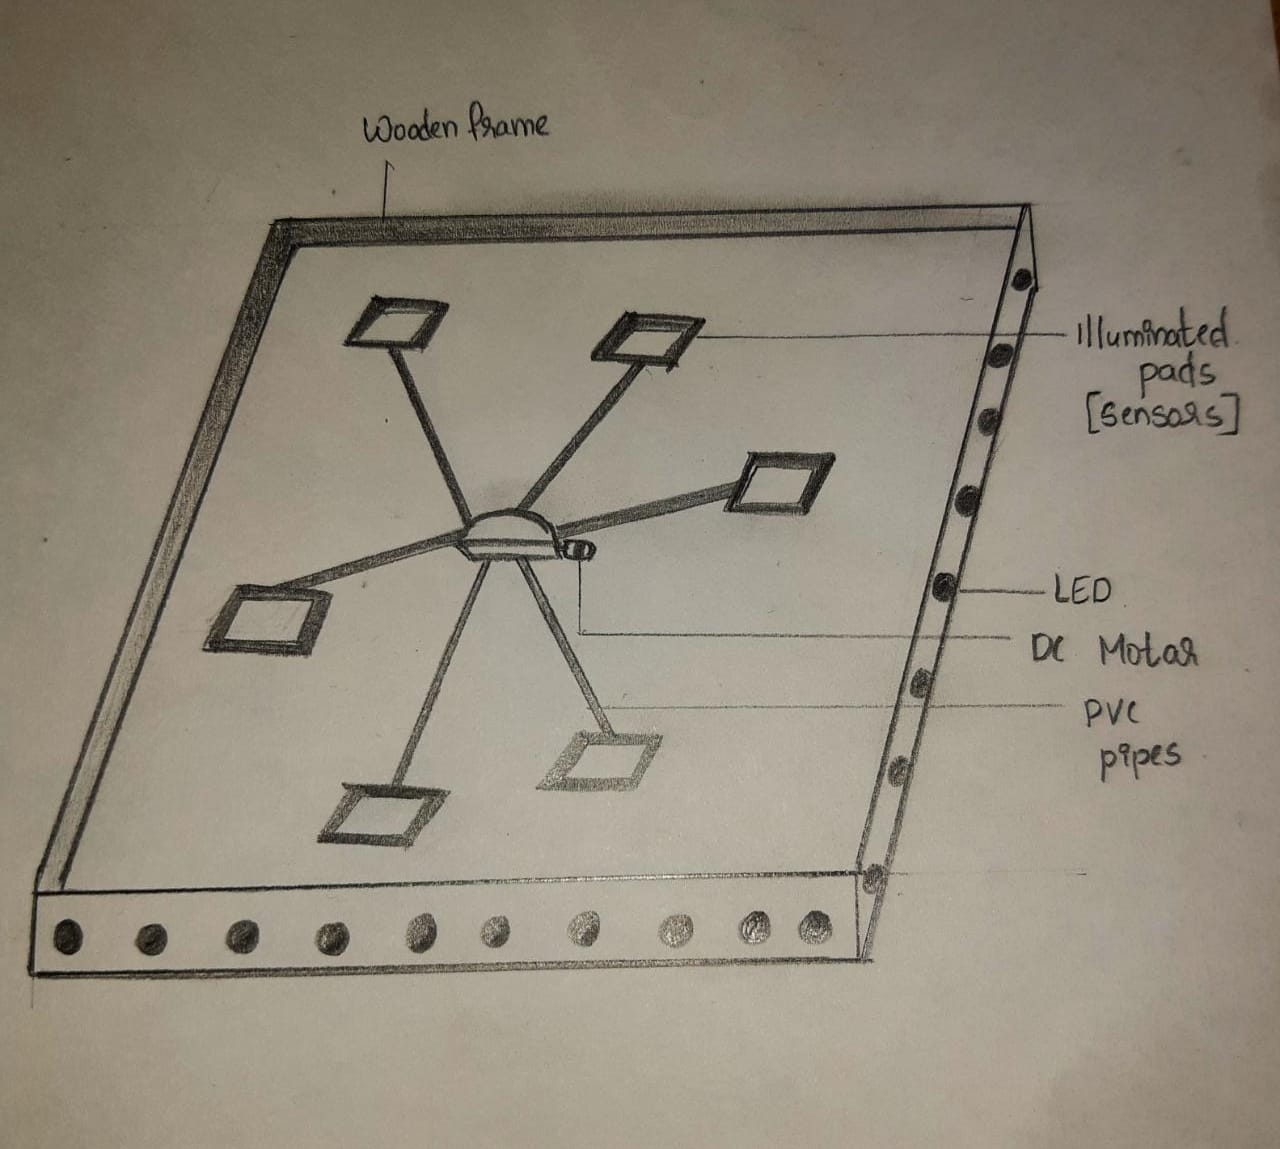 Wooden frame
Illuminated
pads
[Sensors]
LED
DC Motor
PVC
pipes